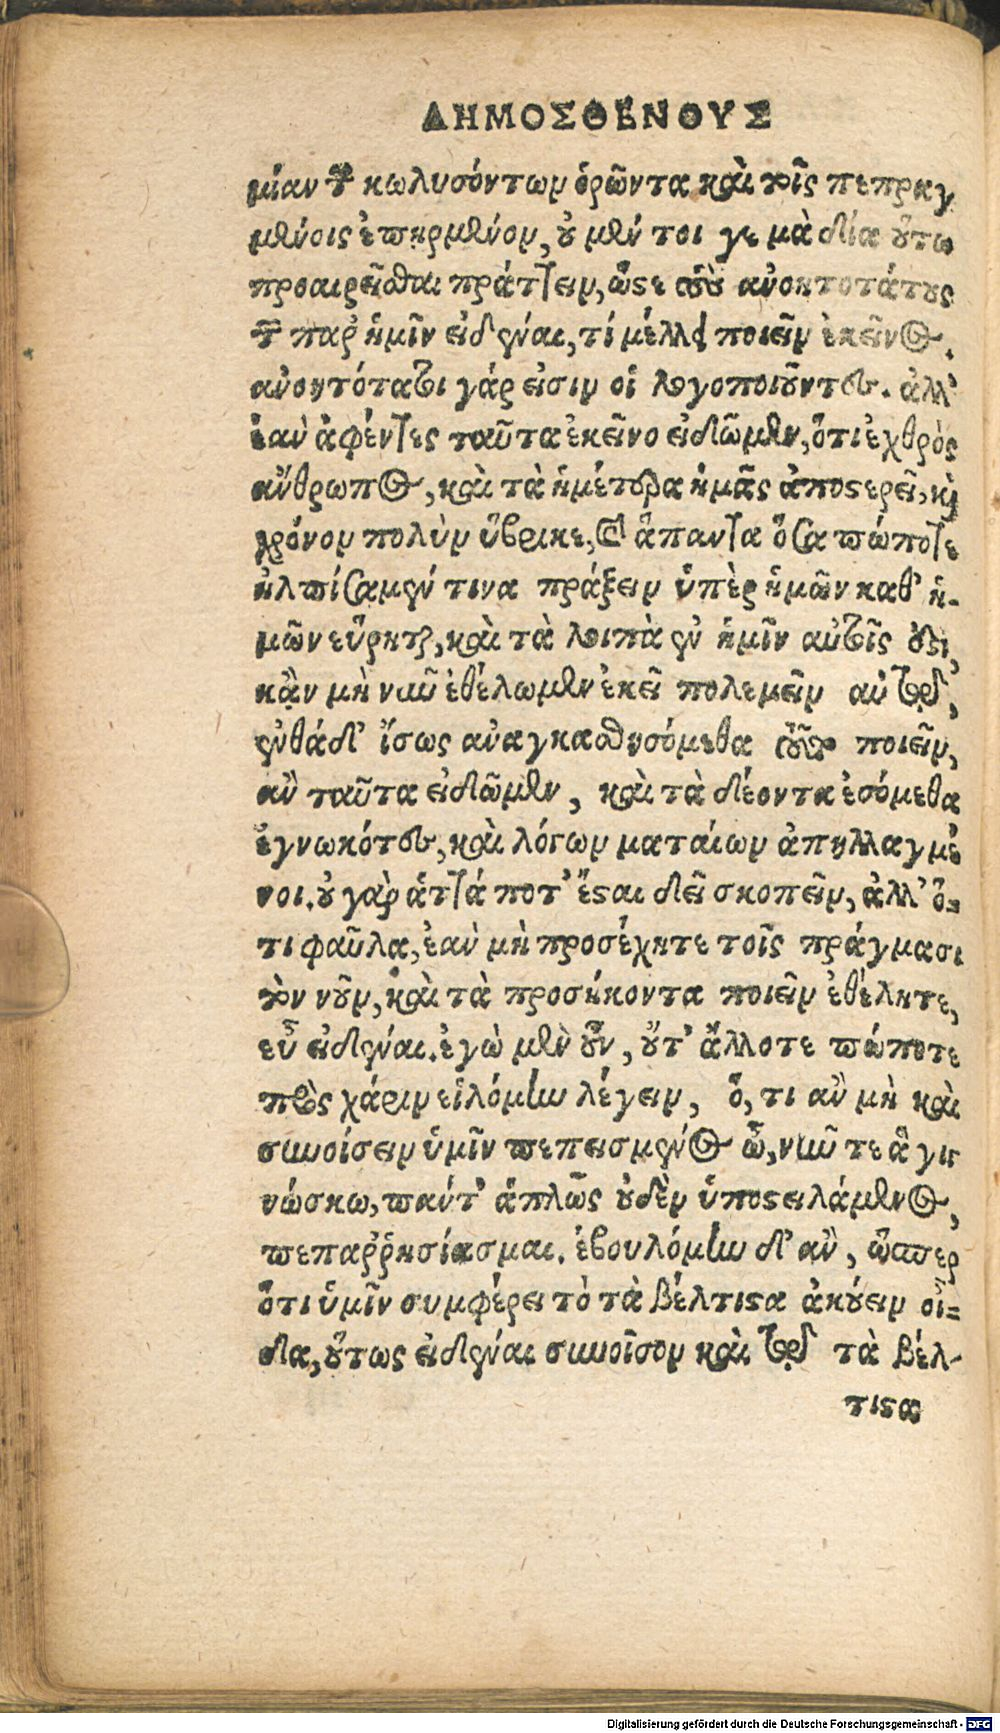 ΔΗΜΟΣΘΕΝΟΥΣ
μίαν τῶν κωλυσόντων ὁρῶντα καὶ τοῖς πεπραγ
μένοις ἐπῃρμένον, οὐ μέν τοι γε μὰ δία οὕτω
προαιρεῖσθαι πράττειν, ὥστε τοὺς ἀνοητοτάτους
τῶν παρ' ἡμῖν εἰδέναι, τί μέλλει ποιεῖν ἐκεῖνος.
ἀνοητότατοι γάρ εἰσιν οἱ λογοποιοῦντες. ἀλλ'
ἐαν ἀφέντες ταῦτα ἐκεῖνο εἰδῶμεν, ὅτι ἐχθρὸς
ἄνθρωπος, καὶ τὰ ἡμέτερα ἡμᾶς ἀποστερεῖ, καὶ
χρόνον πολὺν ὕβρικε, καὶ ἅπαντα ὅσα πώποτε
ἠλπίσαμέν τινα πράξειν ὑπὲρ ἡμῶν καθ' ἡ-
μῶν εὕρηται, καὶ τὰ λοιπὰ ἐν ἡμῖν αὐτοῖς ἐστι,
κἂν μὴ νῦν ἐθέλωμεν ἐκεῖ πολεμεῖν αὐτῷ,
ἐνθάδ' ἴσως ἀναγκασθησόμεθα τοῦτο ποιεῖν,
ἂν ταῦτα εἰδῶμεν, καὶ τὰ δέοντα ἐσόμεθα
ἐγνωκότες, καὶ λόγων ματαίων ἀπηλλαγμέ
νοι. οὐ γὰρ ἅττά ποτ' ἔσται δεῖ σκοπεῖν, ἀλλ' ὅ-
τι φαῦλα, ἐαν μὴ προσέχητε τοῖς πράγμασι
τὸν νοῦν, καὶ τὰ προσήκοντα ποιεῖν ἐθέλητε,
εὖ εἰδέναι. ἐγὼ μὲν οὖν, οὔτ' ἄλλοτε πώποτε
πρὸς χάριν εἱλόμην λέγειν, ὅ, τι ἂν μὴ καὶ
συνοίσειν ὑμῖν πεπεισμένος ὦ, νῦν τε ἃ γιγ
νώσκω, πάντ' ἁπλῶς οὐδὲν ὑποστειλάμενος,
πεπαῤῥησίασμαι. ἐβουλόμην δ' ἂν, ὥσπερ
ὅτι ὑμῖν συμφέρει τὸ τὰ βέλτιστα ἀκούειν οἶ-
δα, οὕτως εἰδέναι συνοῖσον καὶ τῷ τὰ βέλ-
τιστα
Digitalisierung gefördert durch die Deutsche Forschungsgemeinschaft - DFG